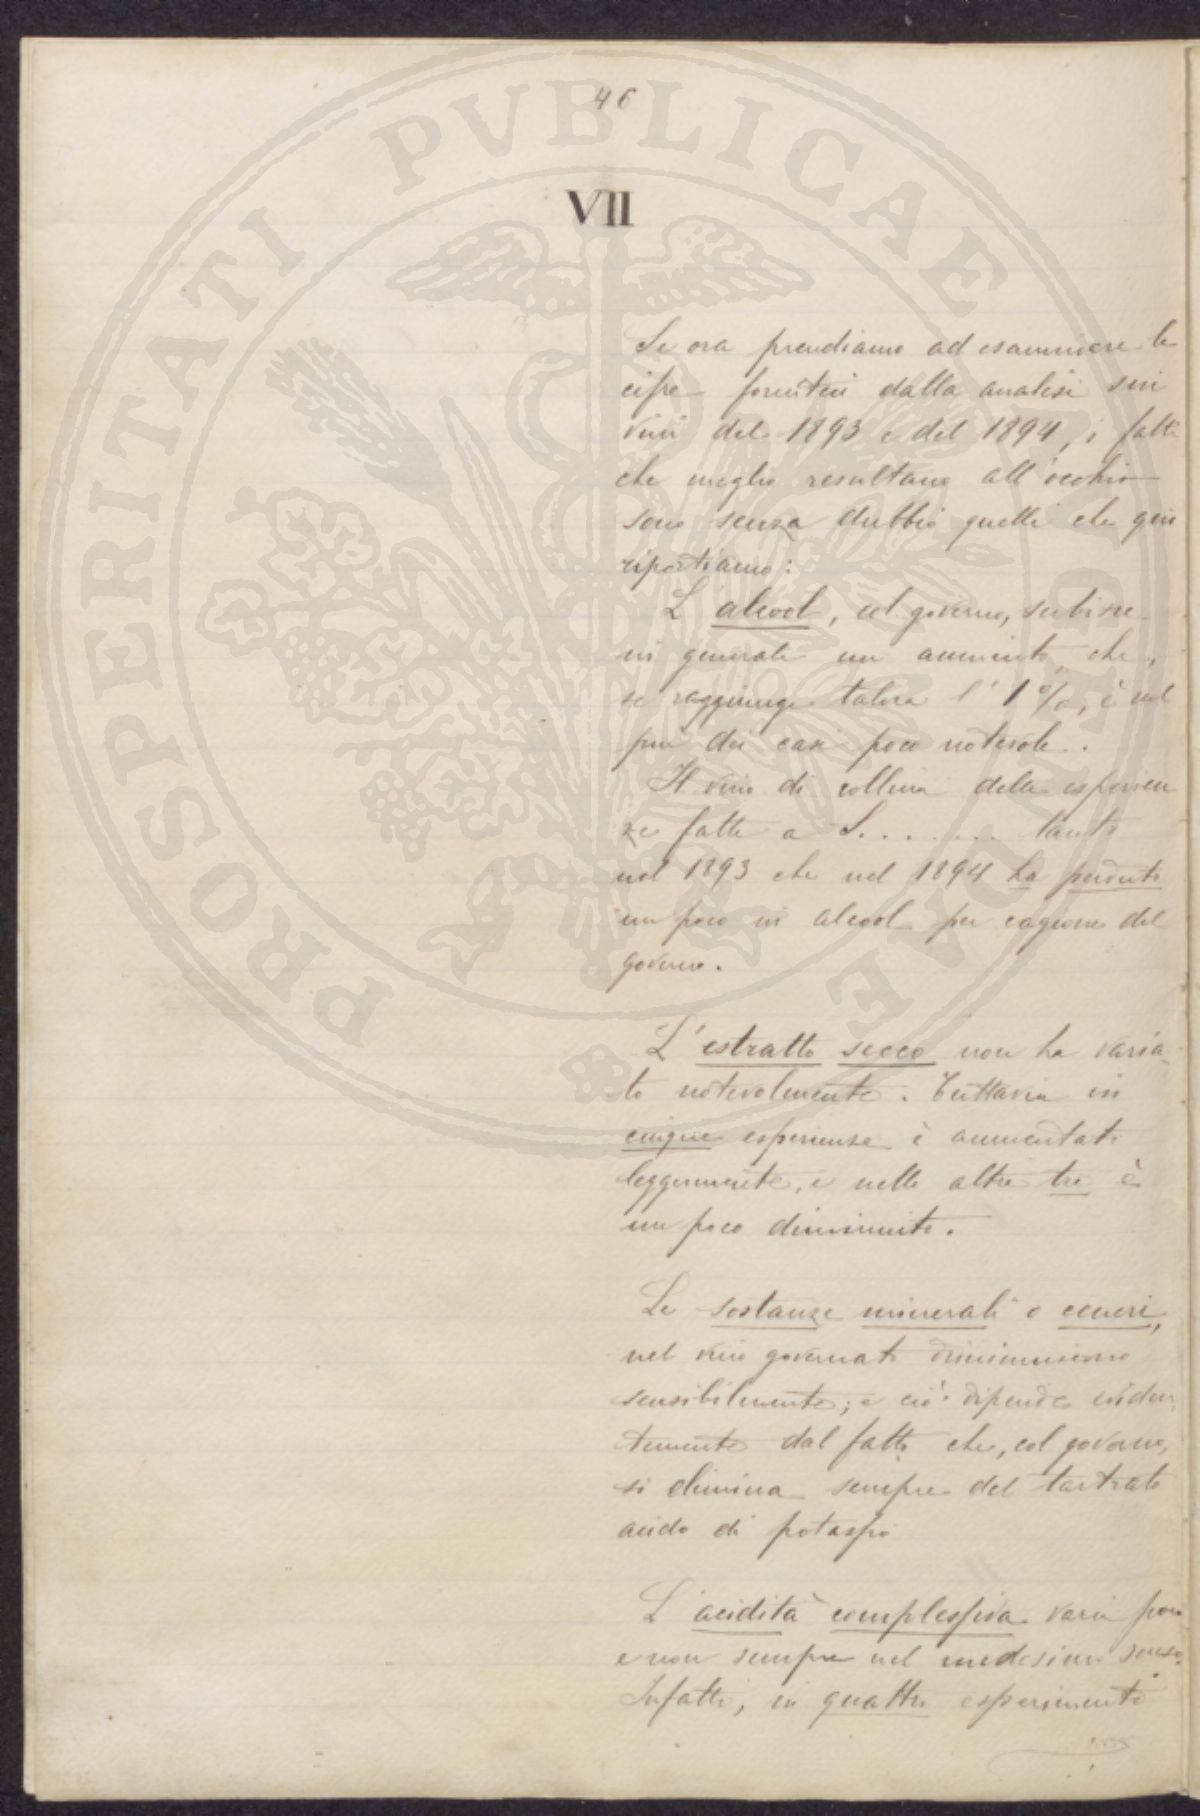 46
VII
Se ora prendiamo ad esaminare le
cifre forniteci dalla analisi sui
vini del 1893 e del 1894, i fatti
che meglio resultano all'occhio
sono senza dubbio quelli che qui
riportiamo:
L'alcool, col governo, subisce
in generale un aumento, che,
se raggiunge talora l'1%, è nel
più dei casi poco notevole.
Il vino di collina delle esperien
ze fatte a S........ tanto
nel 1893 che nel 1894 ha perduto
un poco in alcool per cagione del
governo.
L'estratto secco non ha varia-
to notevolmente. Tuttavia in
cinque esperienze è aumentato
leggermente, e nelle altre tre è
un poco diminuito.
Le sostanze minerali o ceneri,
nel vino governato diminuiscono
sensibilmente; e ciò dipende eviden-
temente dal fatto che, col governo,
si elimina sempre del tartrato
acido di potassio
L'acidità complessiva varia poco
e non sempre nel medesimo senso.
Infatti, in quattro esperimenti
PROSPERITATI PVBLICAE AVGENDAE